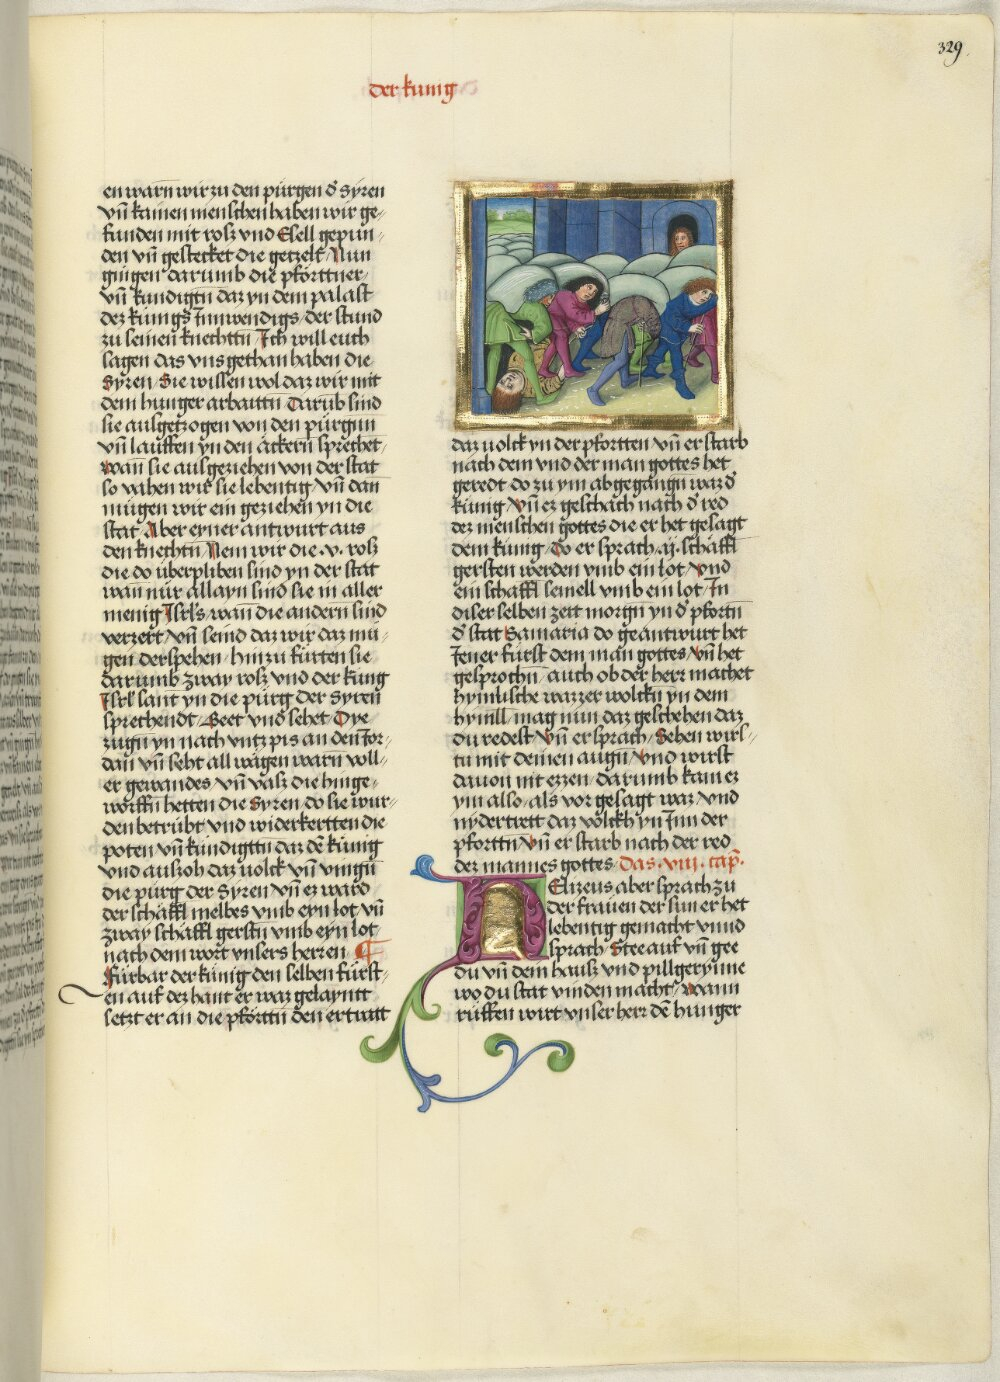 329
der kunig
en warn wir zu den pürgen d̕ Syren
vn̄ kainen menschen haben wir ge-
funden mit rosz vnd Esell gepun-
den vn̄ gestecket die getzelt Nun
gingen darumb die pförttner
vn̄ kundigtn̄ daz yn dem palast
dez kunigs Innwendigs der stund
zu seinen knechttn̄ Ich will euch
sagen das vns gethan haben die
Syren Sie wissen wol daz wir mit
dem hunger arbaittn̄ Darūb sind
sie ausgetzogen von den pürgnn
vn̄ lauffen yn den äckern sprechet
wan̄ sie ausgeziehen von der stat
so vahen wir sie lebentig vn̄ dan̄
mügen wir ein geziehen yn die
stat Aber eyner antwurt aus
den knechtn̄ Nem wir die .v. rosz
die do überpliben sind yn der stat
wan̄ nur allayn sind sie in aller
menig Isrl's wan̄ die andern sind
verzert vn̄ seind daz wir daz mü-
gen derspehen hinzu fürten sie
darumb zway rosz vnd der kung
Isrl' sant yn die pürg der Syren
sprechendt Geet vnd sehet Dye
zugn̄ yn nach vntz pis an den Ior-
dan̄ vn̄ seht all wägen warn voll-
er gewandes vn̄ vasz die hinge-
worffn̄ hetten die Syren do sie wur-
den betrübt vnd widerkertten die
poten vn̄ kündigttn̄ daz dē künig
vnd auszoh daz uolck vn̄ vingn̄
die pürg der Syren vn̄ ez ward
der schäffl melbes vmb eyn lot vn̄
zway schäffl gerstn̄ vmb eyn lot
nach dem wort vnsers herren ¶
Fürbar der künig den selben fürst-
en auf dez hant er waz gelayntt
setzt er an die pförttn̄ den ertratt
daz uolck yn der pfortten vn̄ er starb
nach dem vnd der man gottes het
geredt do zu ym abgegangn̄ waz d̕
künig Vn̄ ez geschach nach d̕ red
dez menschen gottes die er het gesagt
dem künig Do er sprach .ij. schäffl
gersten werden vmb ein lot Vnd
ein schäffl semell vmb ein lot In
diser selben zeit morgn̄ yn d̕ pfortn̄
d̕ stat Samaria do geantwurt het
Iener fürst dem man gottes Vn̄ het
gesprochn̄ auch ob der herr machet
hymlische wazzer wolckn̄ yn dem
hymll mag nun daz geschehen daz
du redest Vn̄ er sprach Sehen wirs-
tu mit deinen augn̄ Vnd wirst
dauon nit ezzen darumb kam ez
ym also als vor gesagt waz vnd
nydertrett daz volckh yn Inn der
pforttn̄ Vn̄ er starb nach der red
dez mannes gottes Das .viij. cap̄.
Elizeus aber sprach zu
der frauen der sun er het
lebentig gemacht vnnd
sprach Stee auf vn̄ gee
du vn̄ dem hausz vnd pillgerynne
wo du stat vinden macht wann
rüffen wirt vnser herr dē hunger